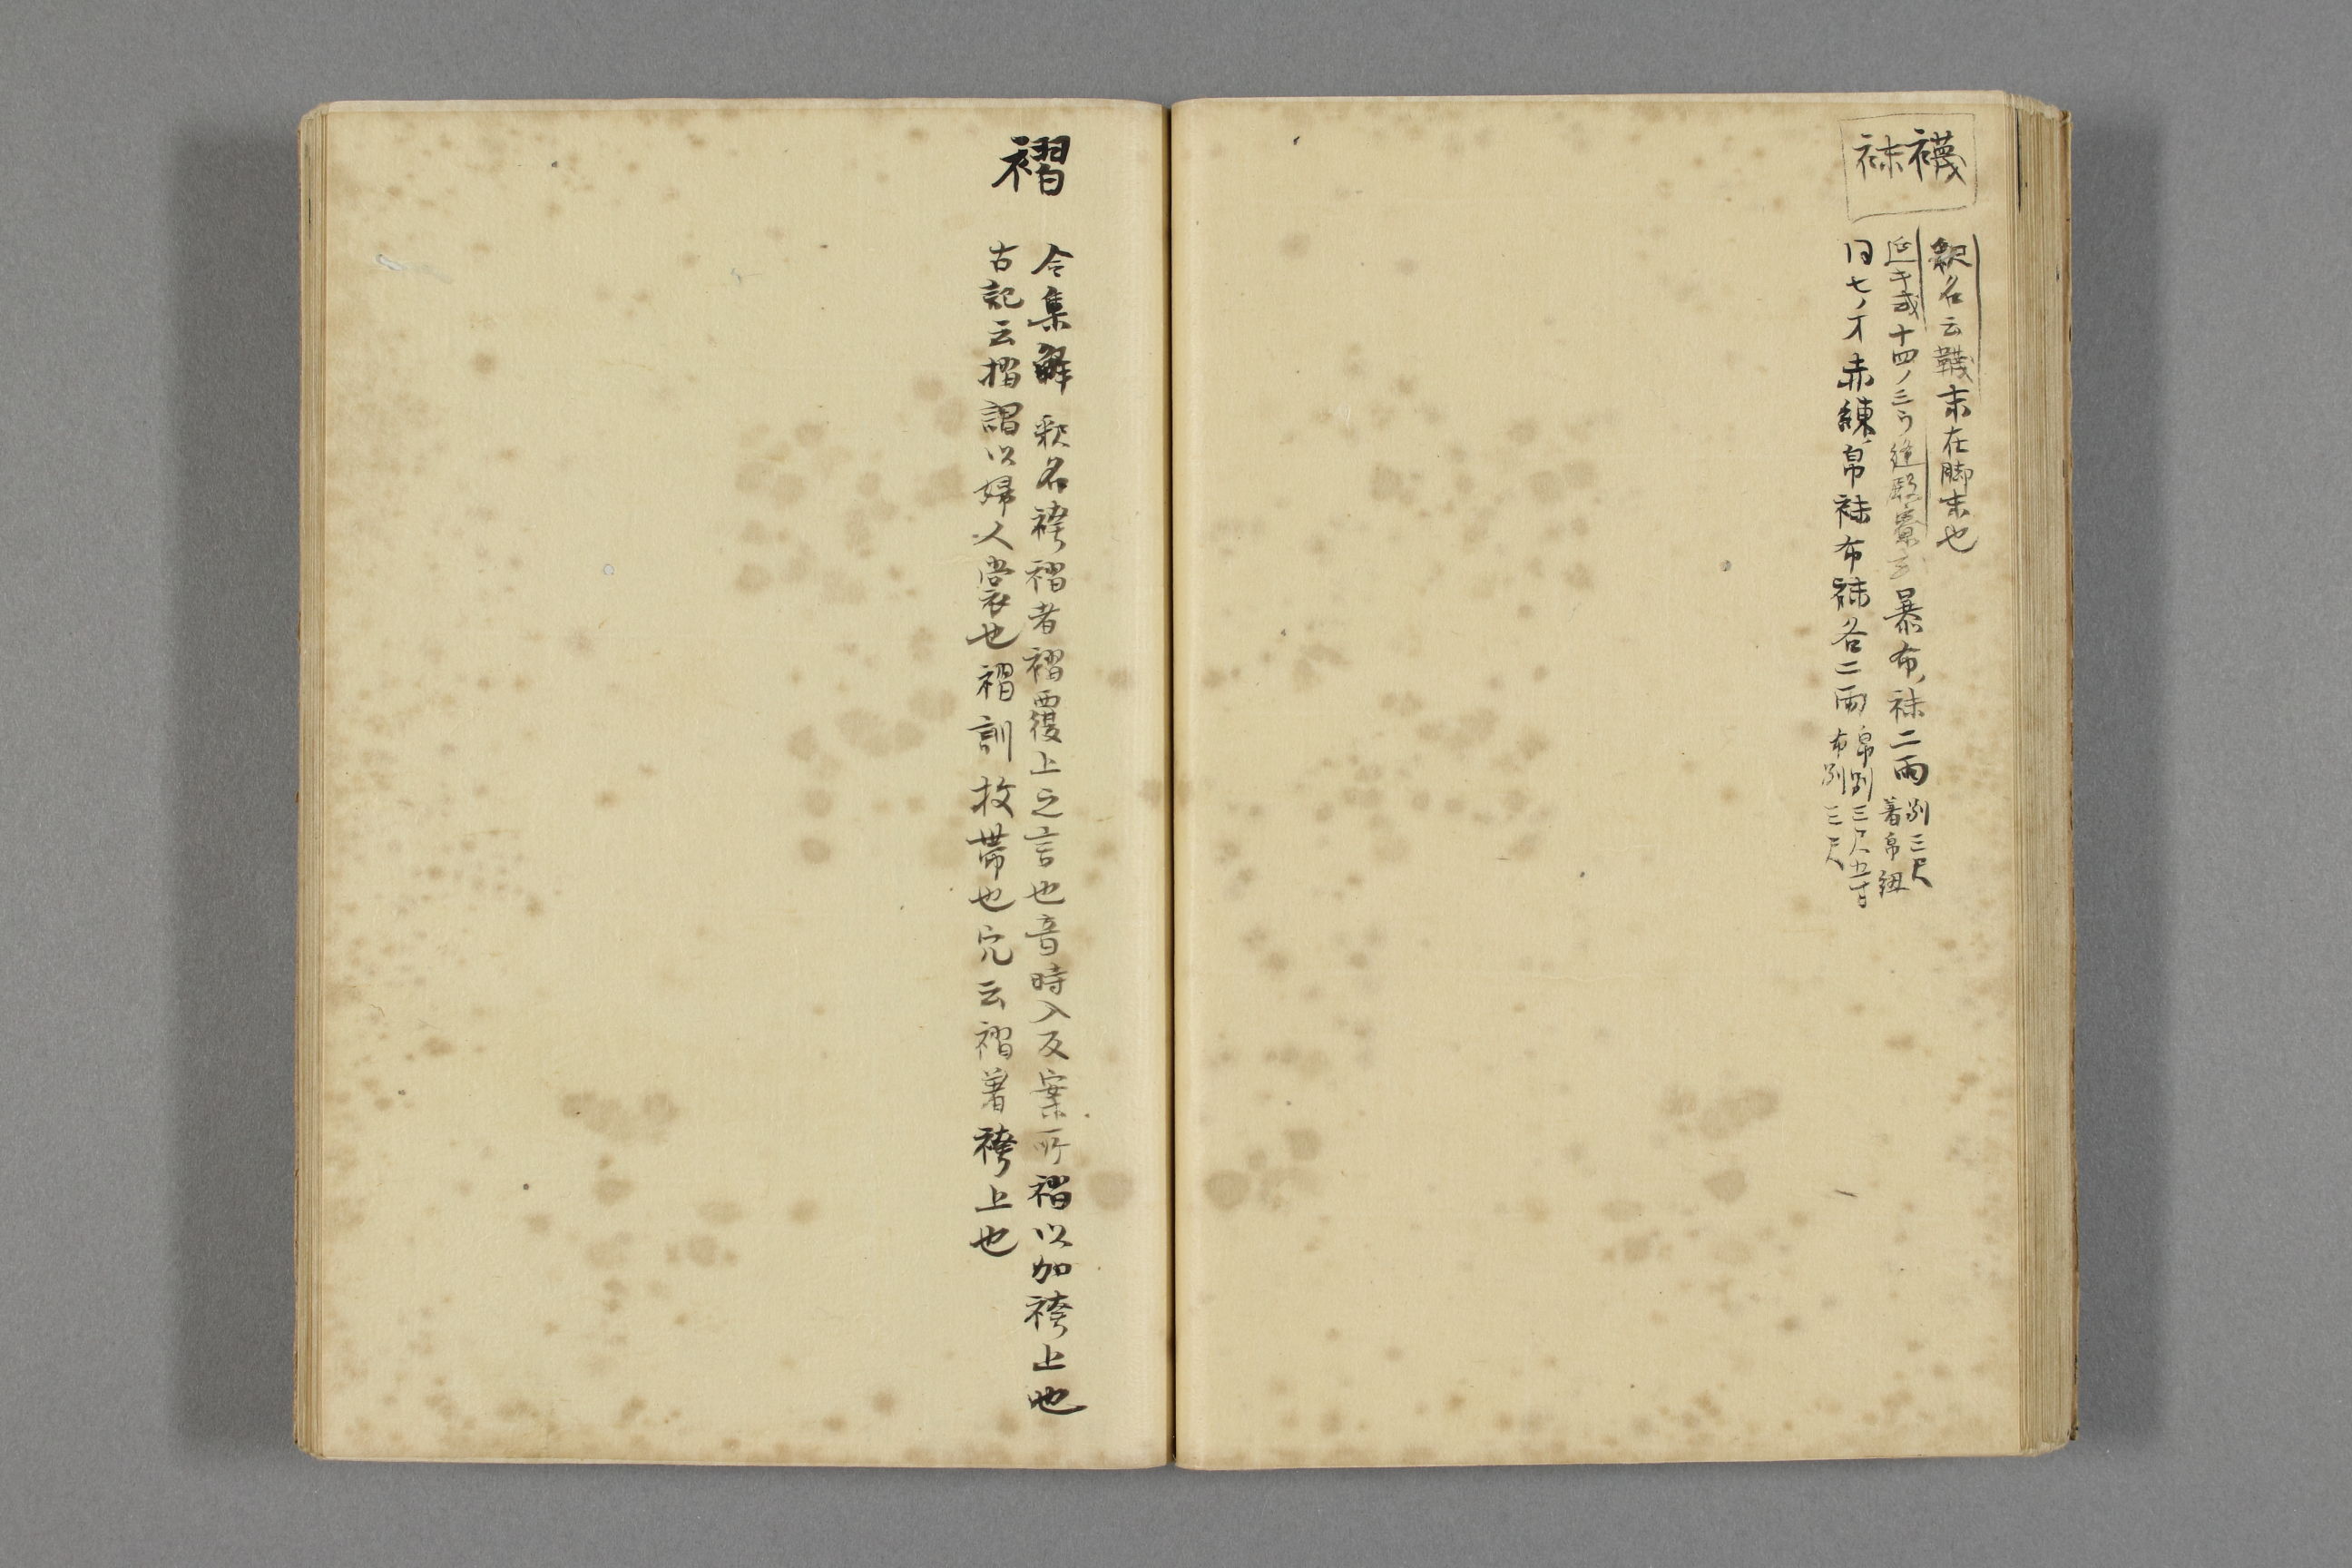 襪
袜
釈名云韈末在脚末也
延㐂式十四ノ三ウ縫殿寮云暴布袜二両
別三尺
著帛紐
同七ノ才赤練帛袜布袜各二両
帛別三尺五寸
布別三尺
褶
令集解釈名袴褶者褶覆上之言也音時入反案所褶以加袴上也
古記云摺謂以婦人裳也褶訓枚帯也穴云褶著袴上也